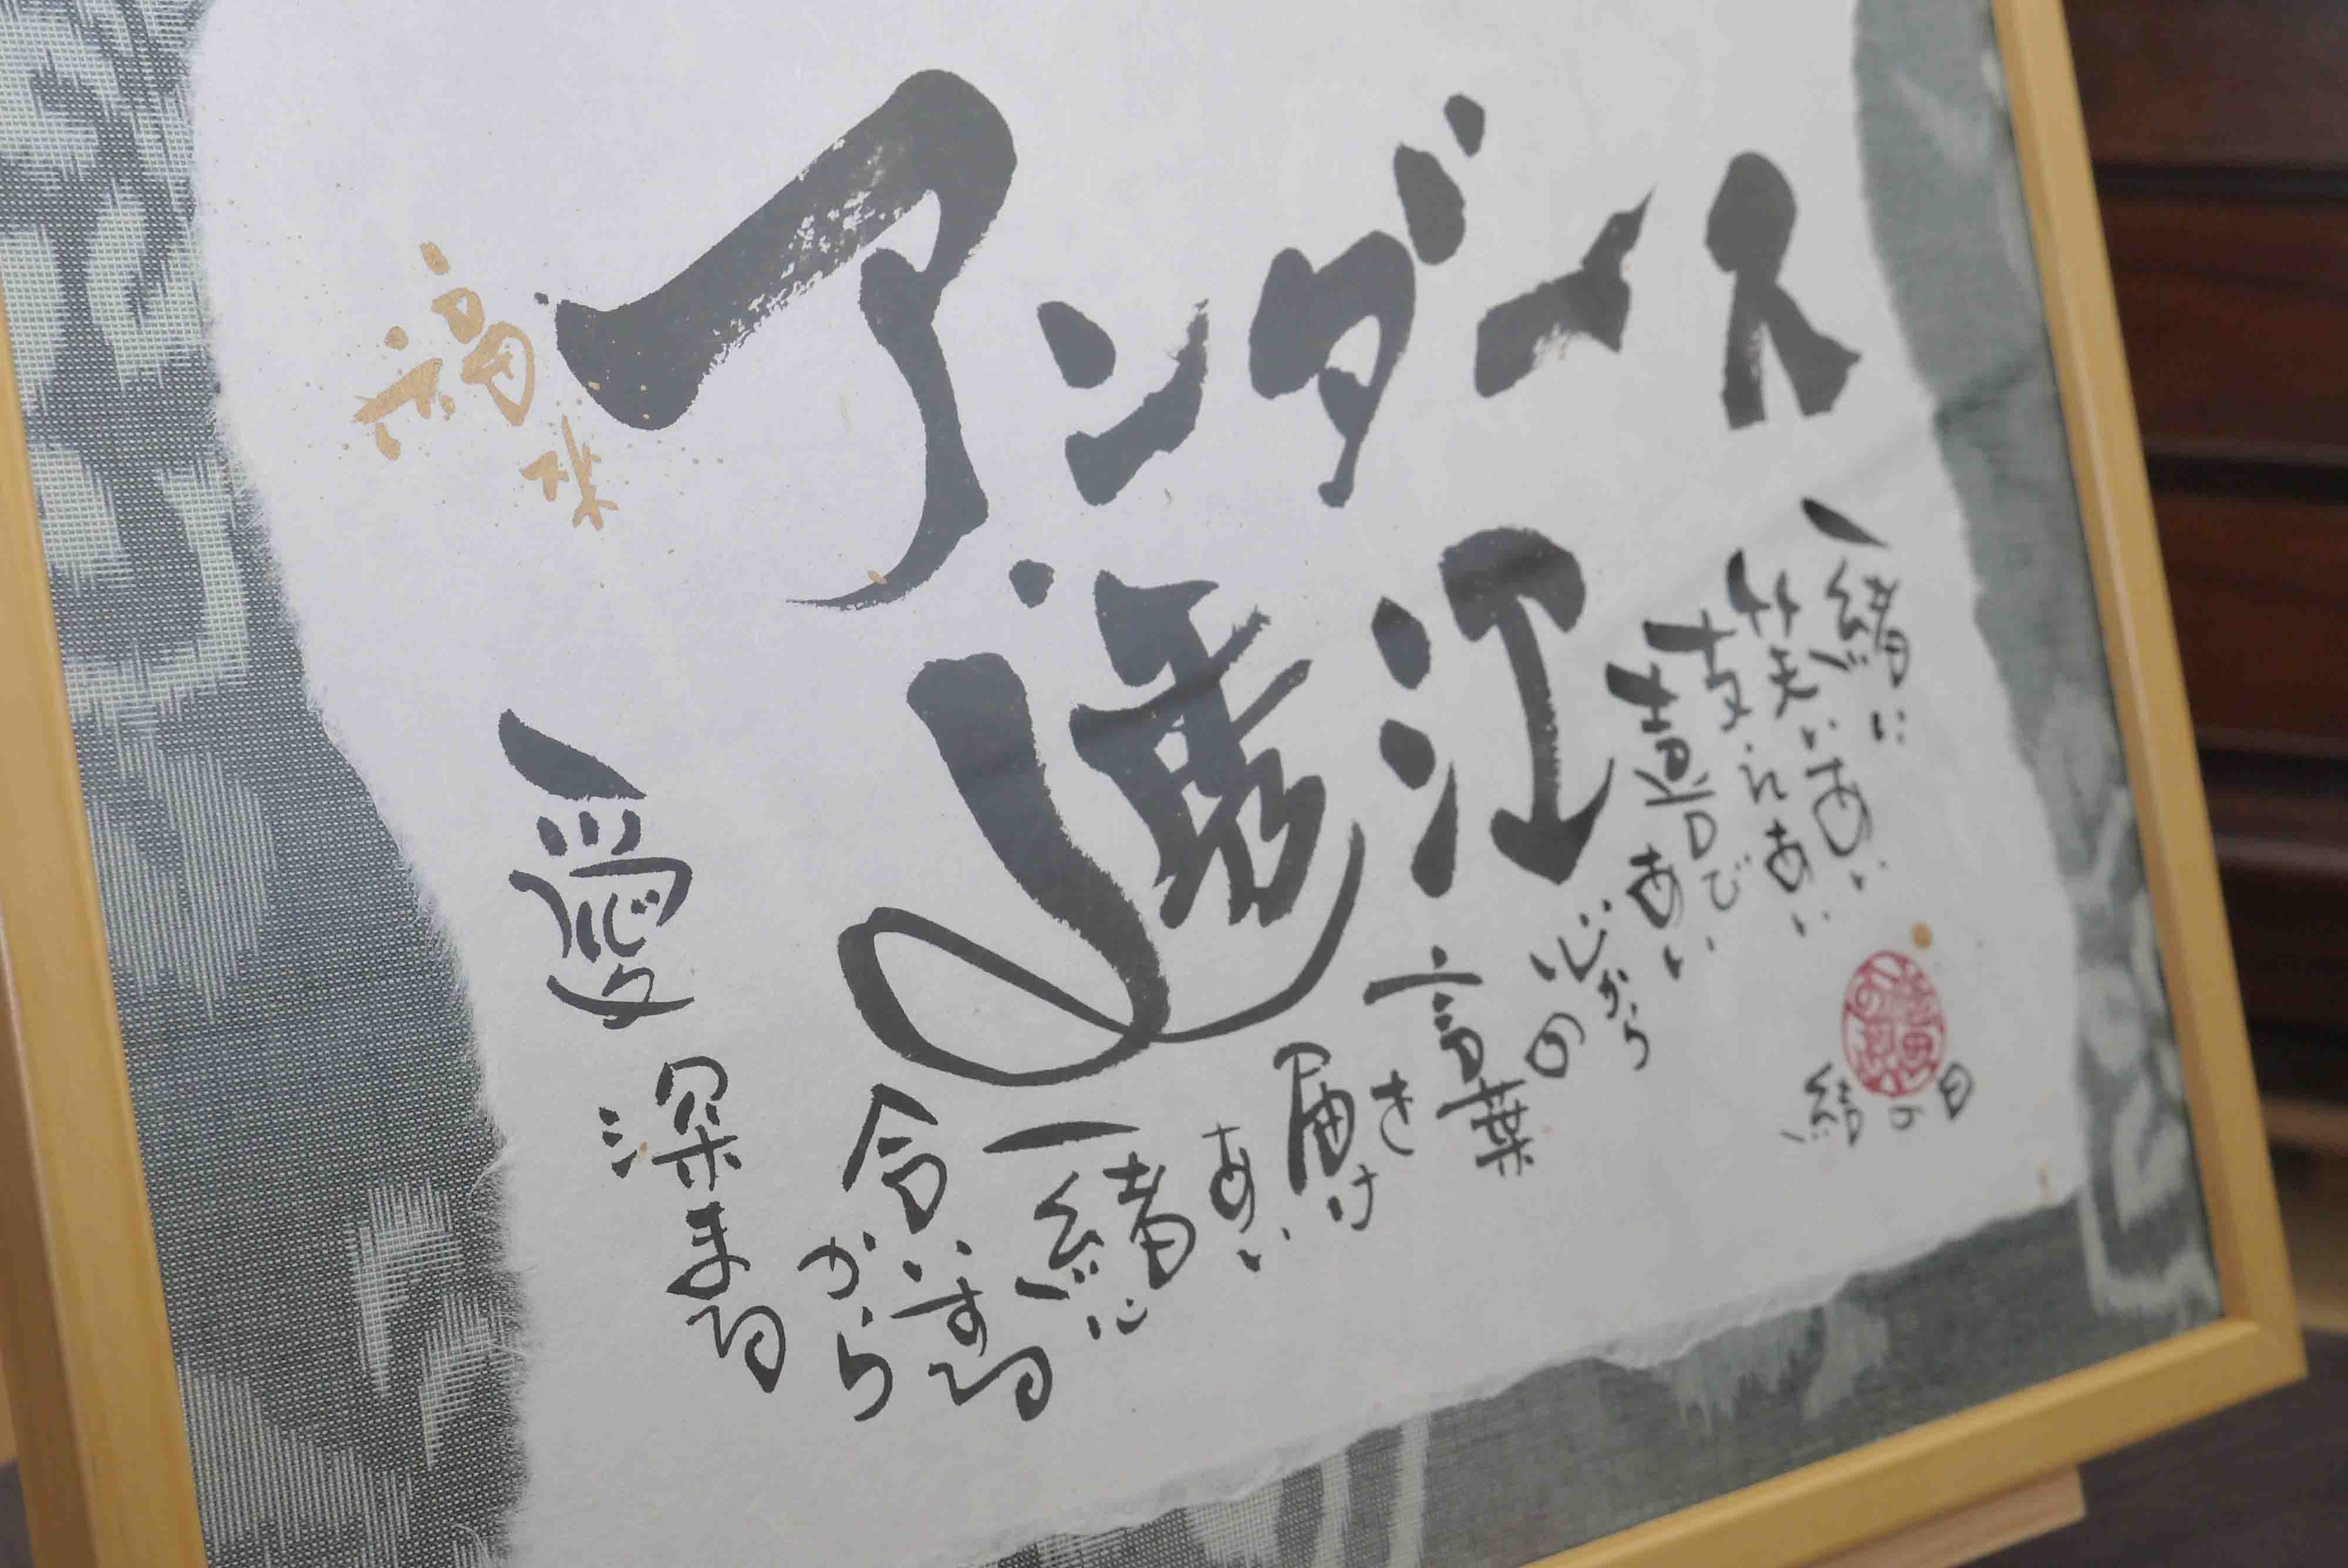 アンダース
江
福来
一緒に
笑いあい
支えあい
喜びあい
心からの
言葉を
届け
あい
一緒に
する
から
愛深まる
結の日